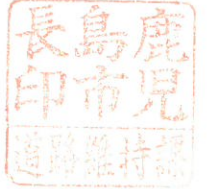 鹿児
島市
長印
道路維持課